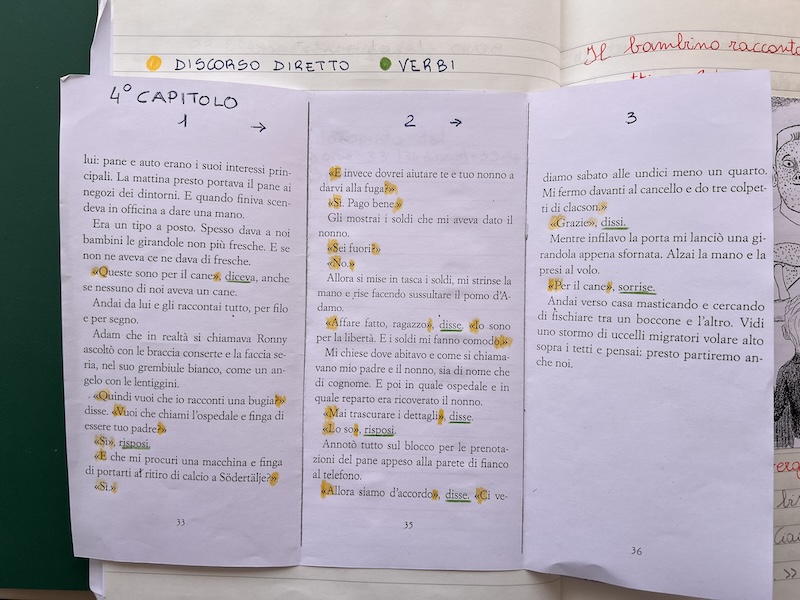 DISCORSO DIRETTO VERBI
Il bambino racconta
4° CAPITOLO
1
lui: pane e auto erano i suoi interessi prin-
cipali. La mattina presto portava il pane ai
negozi dei dintorni. E quando finiva scen-
deva in officina a dare una mano.
Era un tipo a posto. Spesso dava a noi
bambini le girandole non più fresche. E se
non ne aveva ce ne dava di fresche.
«Queste sono per il cane», diceva, anche
se nessuno di noi aveva un cane.
Andai da lui e gli raccontai tutto, per filo
e per segno.
Adam che in realtà si chiamava Ronny
ascoltò con le braccia conserte e la faccia se-
ria, nel suo grembiule bianco, come un an-
gelo con le lentiggini.
«Quindi vuoi che io racconti una bugia?»
disse. «Vuoi che chiami l'ospedale e finga di
essere tuo padre?»
«Sì», risposi.
«E che mi procuri una macchina e finga
di portarti al ritiro di calcio a Södertälje?»
«Sì.»
33
2
«E invece dovrei aiutare te e tuo nonno a
darvi alla fuga?»
«Sì. Pago bene.»
Gli mostrai i soldi che mi aveva dato il
nonno.
«Sei fuori?»
«No.»
Allora si mise in tasca i soldi, mi strinse la
mano e rise facendo sussultare il pomo d'A-
damo.
«Affare fatto, ragazzo», disse. «Io sono
per la libertà. E i soldi mi fanno comodo.»
Mi chiese dove abitavo e come si chiama-
vano mio padre e il nonno, sia di nome che
di cognome. E poi in quale ospedale e in
quale reparto era ricoverato il nonno.
«Mai trascurare i dettagli», disse.
«Lo so», risposi.
Annotò tutto sul blocco per le prenota-
zioni del pane appeso alla parete di fianco
al telefono.
«Allora siamo d'accordo», disse. «Ci ve-
35
3
diamo sabato alle undici meno un quarto.
Mi fermo davanti al cancello e do tre colpet-
ti di clacson.»
«Grazie», dissi.
Mentre infilavo la porta mi lanciò una gi-
randola appena sfornata. Alzai la mano e la
presi al volo.
«Per il cane», sorrise.
Andai verso casa masticando e cercando
di fischiare tra un boccone e l'altro. Vidi
uno stormo di uccelli migratori volare alto
sopra i tetti e pensai: presto partiremo an-
che noi.
36